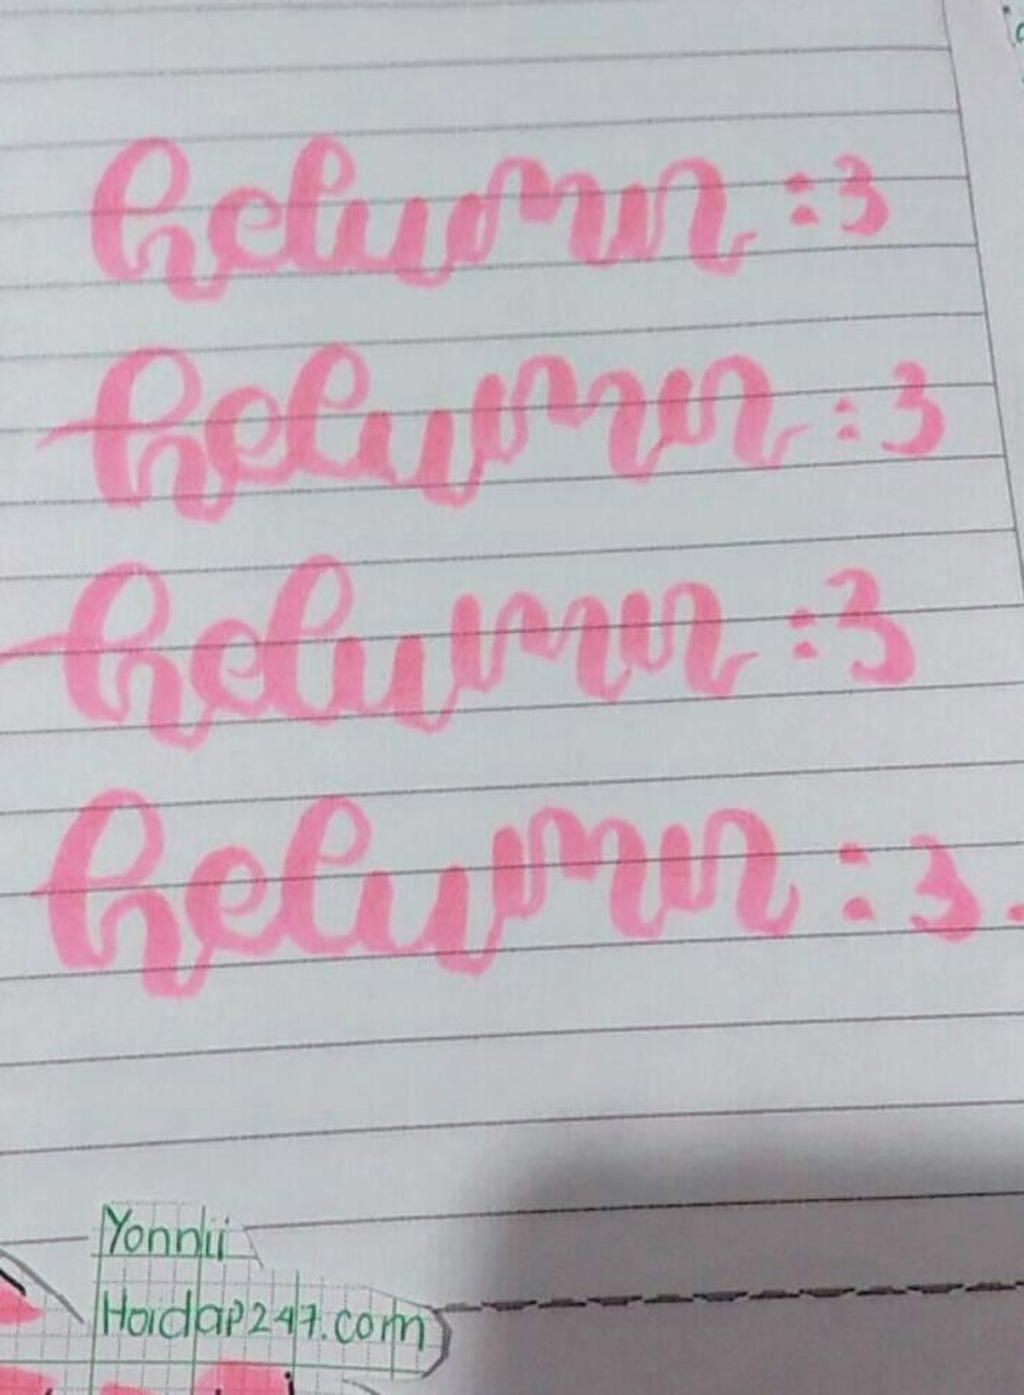 helumn :3
helumn :3
helumn :3
helumn :3.
Yonnlii
Hoidap247.com